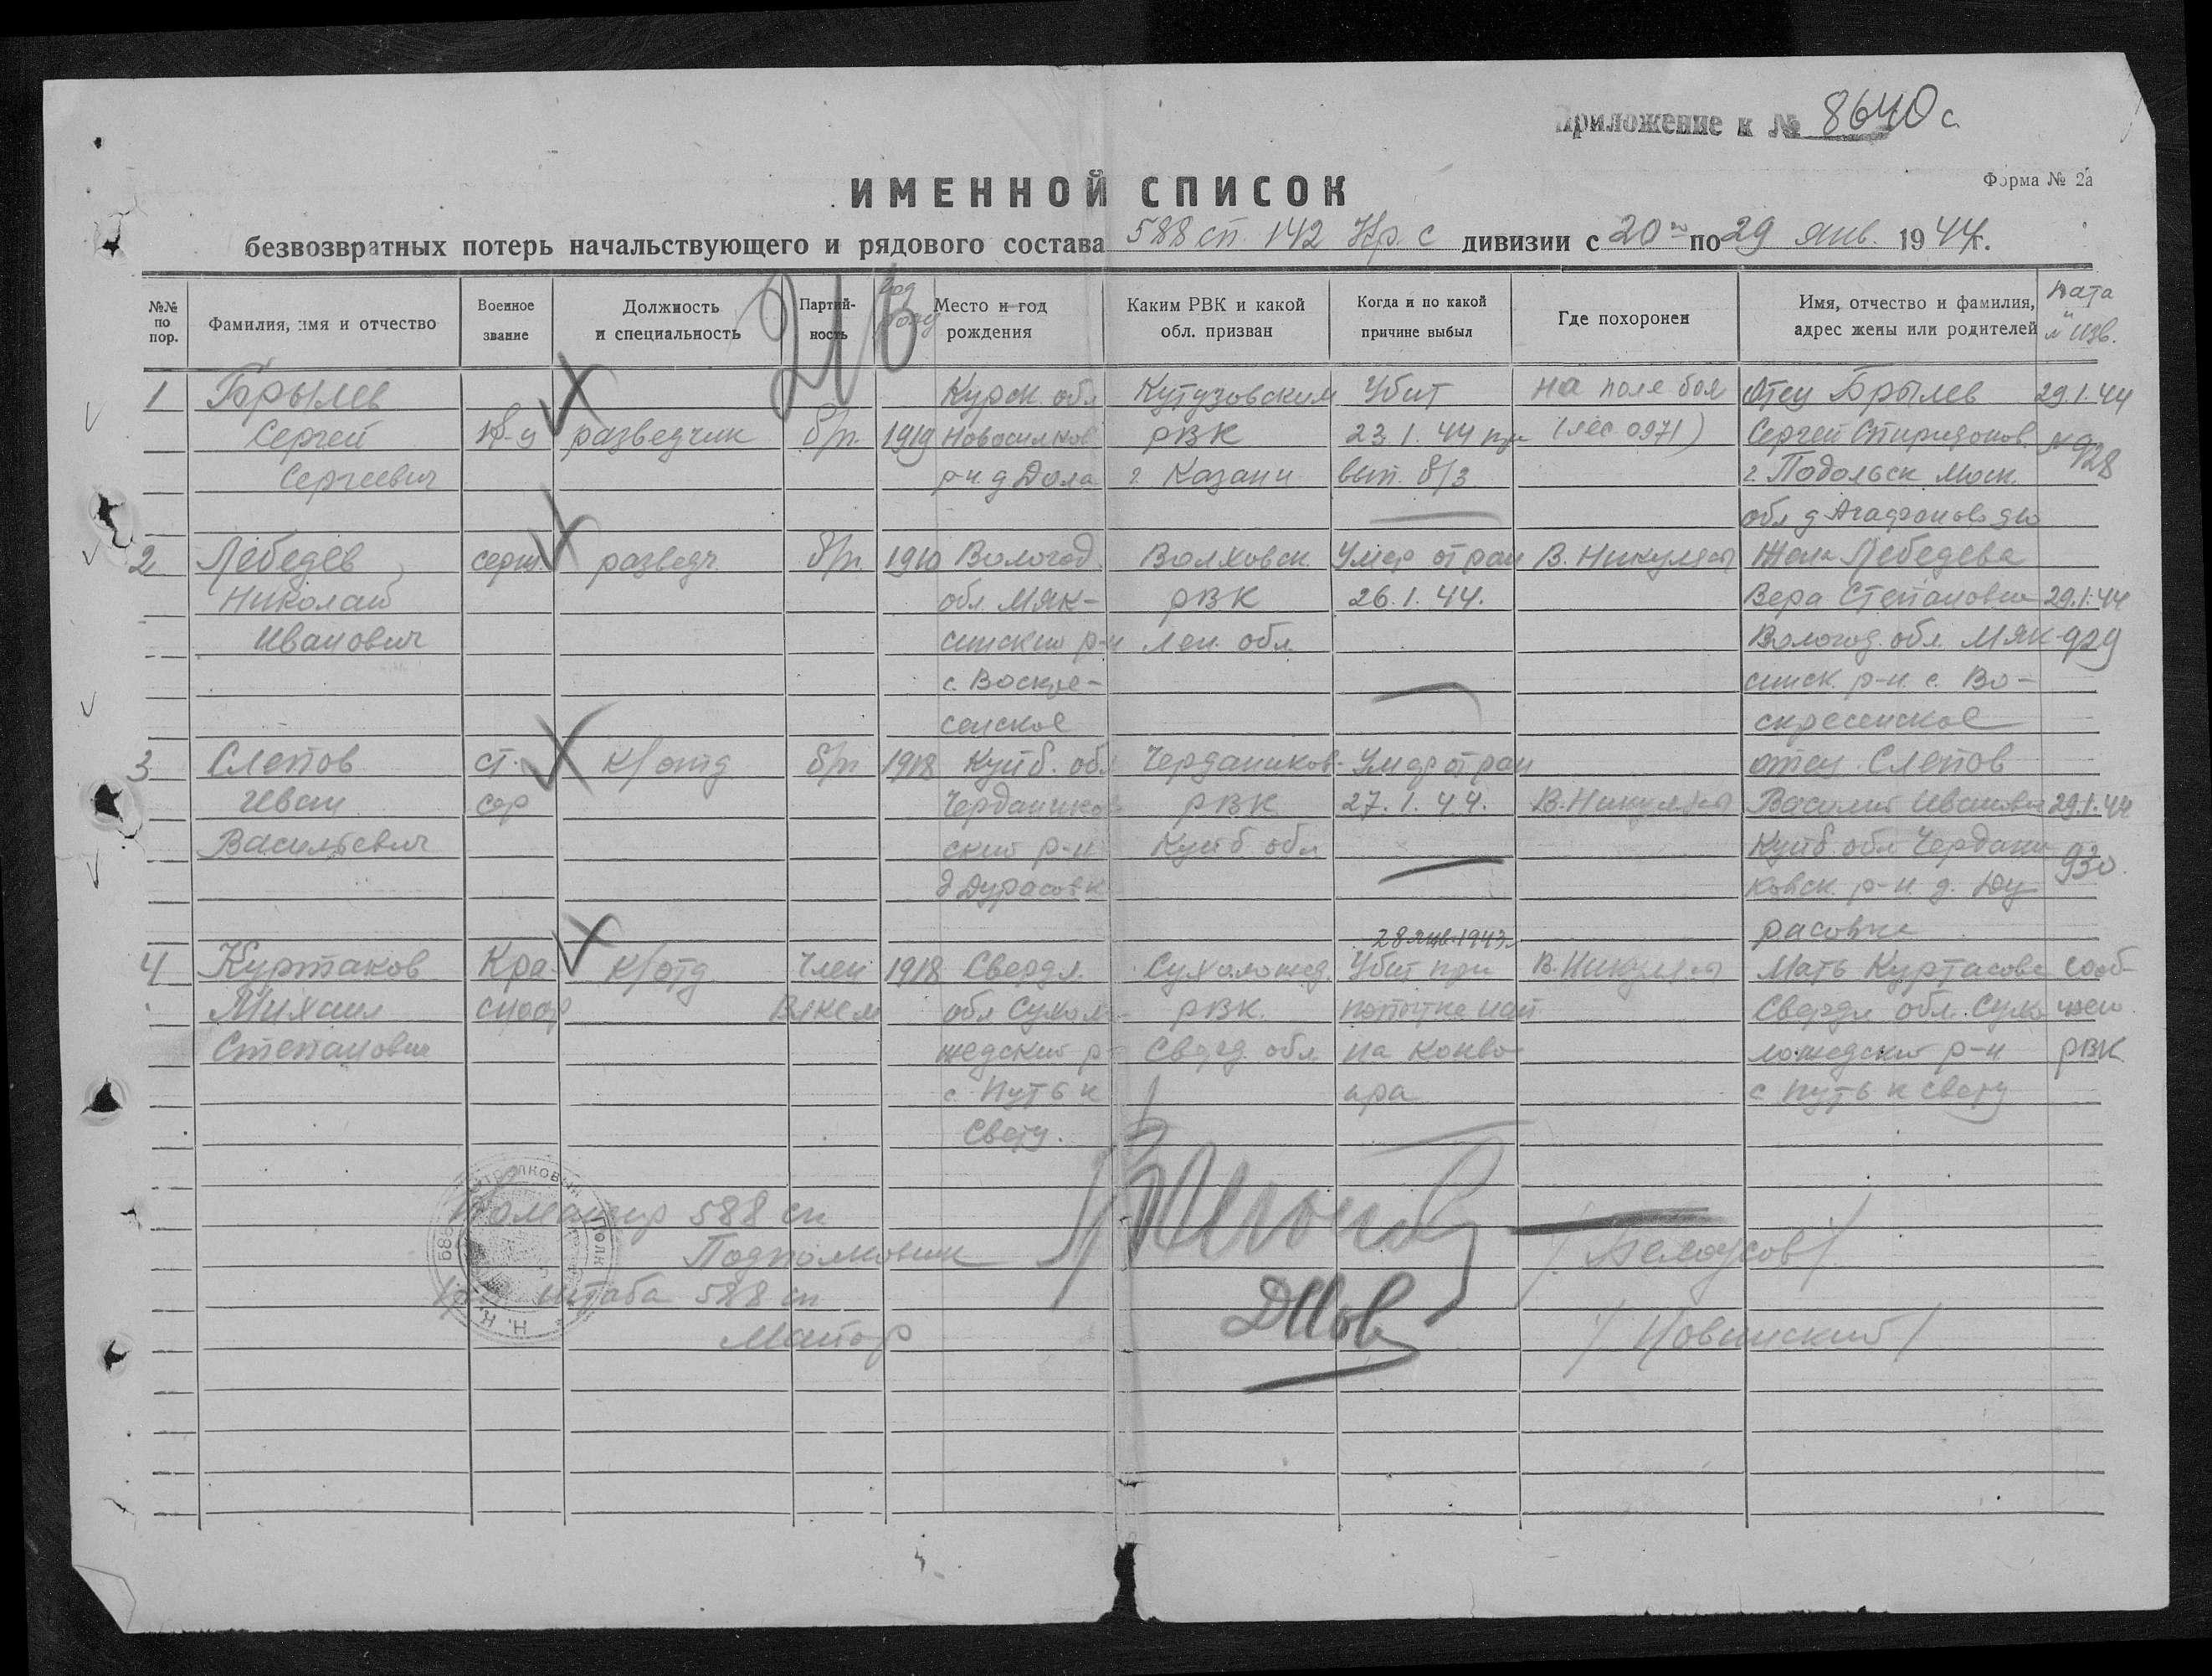 Приложение к № 8640с
Форма № 2а
ИМЕННОЙ СПИСОК
безвозвратных потерь начальствующего и рядового состава 588 сп. 142 дивизии с 20 по 29 янв. 1944г.
№№ по пор.
Фамилия, имя и отчество
Военное звание
Должность и специальность
Партийность
Год
Место и год рождения
Каким РВК и какой обл. призван
Когда и по какой причине выбыл
Где похоронен
Имя, отчество и фамилия, адрес жены или родителей
Дата и № изв.
216
1 Брылев Курск. обл Кутузовским Убит на поле боя Отец Брылев 29.1.44
Сергей кр-ц разведчик б/п. 1919 РВК 23.1.44 при (лес 0971) Сергей Спиридонов. № 928
Сергеевич р-н. д Дола г. Казани вып. б/з г. Подольск Моск.
обл д
2 Лебедев серж разведч. б/п. 1910 Вологод. Волховск. Умер от ран В. Никулясы Жена Лебедева
Николай обл. Мяк- РВК 26.1.44. Вера Степановна 29.1.44
Иванович синский р-н Лен. обл. Вологод. обл. Мяк- 929
с. Воскре- синск. р-н. с. Во-
сенское скресенское
3 Слепов ст. к/отд б/п 1918 Куйб. обл Чердаклов. Умер от ран отец Слепов
Иван сер РВК 27.1.44. В. Никулясы Василий Иванович 29.1.44
Васильевич ский р-н Куйб обл Куйб обл 930.
д Дурасовк ковск. р-н. д. Ду-
расовка
28 янв. 1943.
4 Куртаков Кра- к/отд. Член 1918 Свердл. Сухоложед. Убит при В. Никулясы Мать Куртакова сооб-
Михаил сноар ВЛКСМ обл Сухоло- РВК. попытке нап Свердл. обл. Сухо щен.
Степанович жедский р- Сверд. обл на конво- ложедский р-н РВК
с. Путь к ира с Путь к свету
Свету.
Командир 588 сп
Подполковник /Белоусов/
Нач штаба 588 сп
Майор /Новинский/